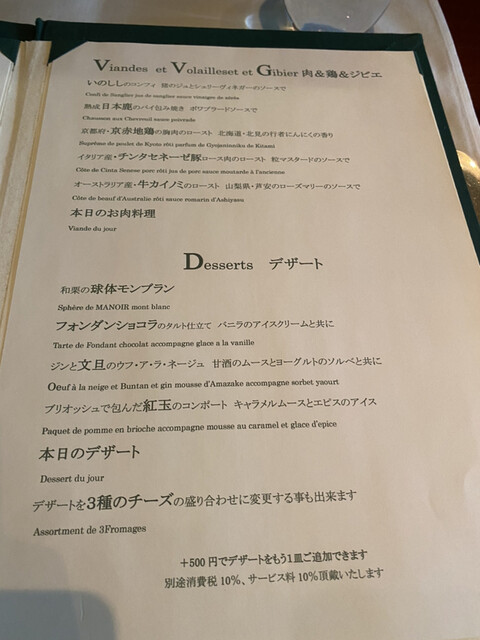 Viandes et Volailleset et Gibier 肉＆鶏＆ジビエ
いのししのコンフィ 猪のジュとシェリーヴィネガーのソースで
Confi de Sanglier jus de sanglier sauce vinaigre de xérès
熟成日本鹿のパイ包み焼き ポワブラードソースで
Chausson aux Chevreuil sauce poivrade
京都府・京赤地鶏の胸肉のロースト 北海道・北見の行者にんにくの香り
Suprême de poulet de Kyoto rôti parfum de Gyojaninniku de Kitami
イタリア産・チンタセネーゼ豚ロース肉のロースト 粒マスタードのソースで
Côte de Cinta Senese porc rôti jus de porc sauce moutarde à l'ancienne
オーストラリア産・牛カイノミのロースト 山梨県・芦安のローズマリーのソースで
Côte de beauf d'Australie rôti sauce romarin d'Ashiyasu
本日のお肉料理
Viande du jour
Desserts デザート
和栗の球体モンブラン
Sphère de MANOIR mont blanc
フォンダンショコラのタルト仕立て バニラのアイスクリームと共に
Tarte de Fondant chocolat accompagne glace a la vanille
ジンと文旦のウフ・ア・ラ・ネージュ 甘酒のムースとヨーグルトのソルベと共に
Oeuf à la neige et Buntan et gin mousse d'Amazake accompagne sorbet yaourt
ブリオッシュで包んだ紅玉のコンポート キャラメルムースとエピスのアイス
Paquet de pomme en brioche accompagne mousse au caramel et glace d'epice
本日のデザート
Dessert du jour
デザートを3種のチーズの盛り合わせに変更する事も出来ます
Assortment de 3Fromages
＋500 円でデザートをもう1皿ご追加できます
別途消費税 10%、サービス料 10%頂戴いたします